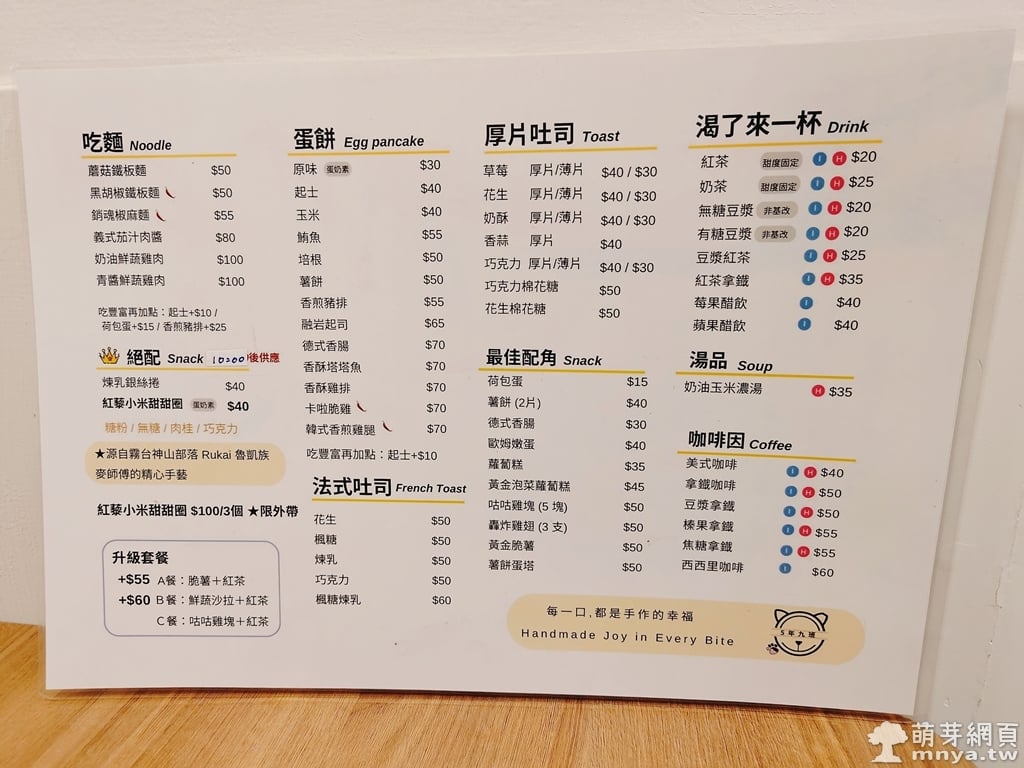 吃麵 Noodle
蘑菇鐵板麵 $50
黑胡椒鐵板麵 $50
銷魂椒麻麵 $55
義式茄汁肉醬 $80
奶油鮮蔬雞肉 $100
青醬鮮蔬雞肉 $100
吃豐富再加點：起士+$10 /
荷包蛋+$15 / 香煎豬排+$25
絕配 Snack 10:00後供應
煉乳銀絲捲 $40
紅藜小米甜甜圈 蛋奶素 $40
糖粉 / 無糖 / 肉桂 / 巧克力
★源自霧台神山部落 Rukai 魯凱族
麥師傅的精心手藝
紅藜小米甜甜圈 $100/3個 ★限外帶
升級套餐
+$55 A餐：脆薯＋紅茶
+$60 B餐：鮮蔬沙拉＋紅茶
C餐：咕咕雞塊＋紅茶
蛋餅 Egg pancake
原味 蛋奶素 $30
起士 $40
玉米 $40
鮪魚 $55
培根 $50
薯餅 $50
香煎豬排 $55
融岩起司 $65
德式香腸 $70
香酥塔塔魚 $70
香酥雞排 $70
卡啦脆雞 $70
韓式香煎雞腿 $70
吃豐富再加點：起士+$10
法式吐司 French Toast
花生 $50
楓糖 $50
煉乳 $50
巧克力 $50
楓糖煉乳 $60
厚片吐司 Toast
草莓 厚片/薄片 $40 / $30
花生 厚片/薄片 $40 / $30
奶酥 厚片/薄片 $40 / $30
香蒜 厚片 $40
巧克力 厚片/薄片 $40 / $30
巧克力棉花糖 $50
花生棉花糖 $50
最佳配角 Snack
荷包蛋 $15
薯餅 (2片) $40
德式香腸 $30
歐姆嫩蛋 $40
蘿蔔糕 $35
黃金泡菜蘿蔔糕 $45
咕咕雞塊 (5 塊) $50
轟炸雞翅 (3 支) $50
黃金脆薯 $50
薯餅蛋塔 $50
渴了來一杯 Drink
紅茶 甜度固定 I H $20
奶茶 甜度固定 I H $25
無糖豆漿 非基改 I H $20
有糖豆漿 非基改 I H $20
豆漿紅茶 I H $25
紅茶拿鐵 I H $35
莓果醋飲 I $40
蘋果醋飲 I $40
湯品 Soup
奶油玉米濃湯 H $35
咖啡因 Coffee
美式咖啡 I H $40
拿鐵咖啡 I H $50
豆漿拿鐵 I H $50
榛果拿鐵 I H $55
焦糖拿鐵 I H $55
西西里咖啡 I $60
每一口,都是手作的幸福
Handmade Joy in Every Bite
5年九班
萌芽網頁
mnya.tw